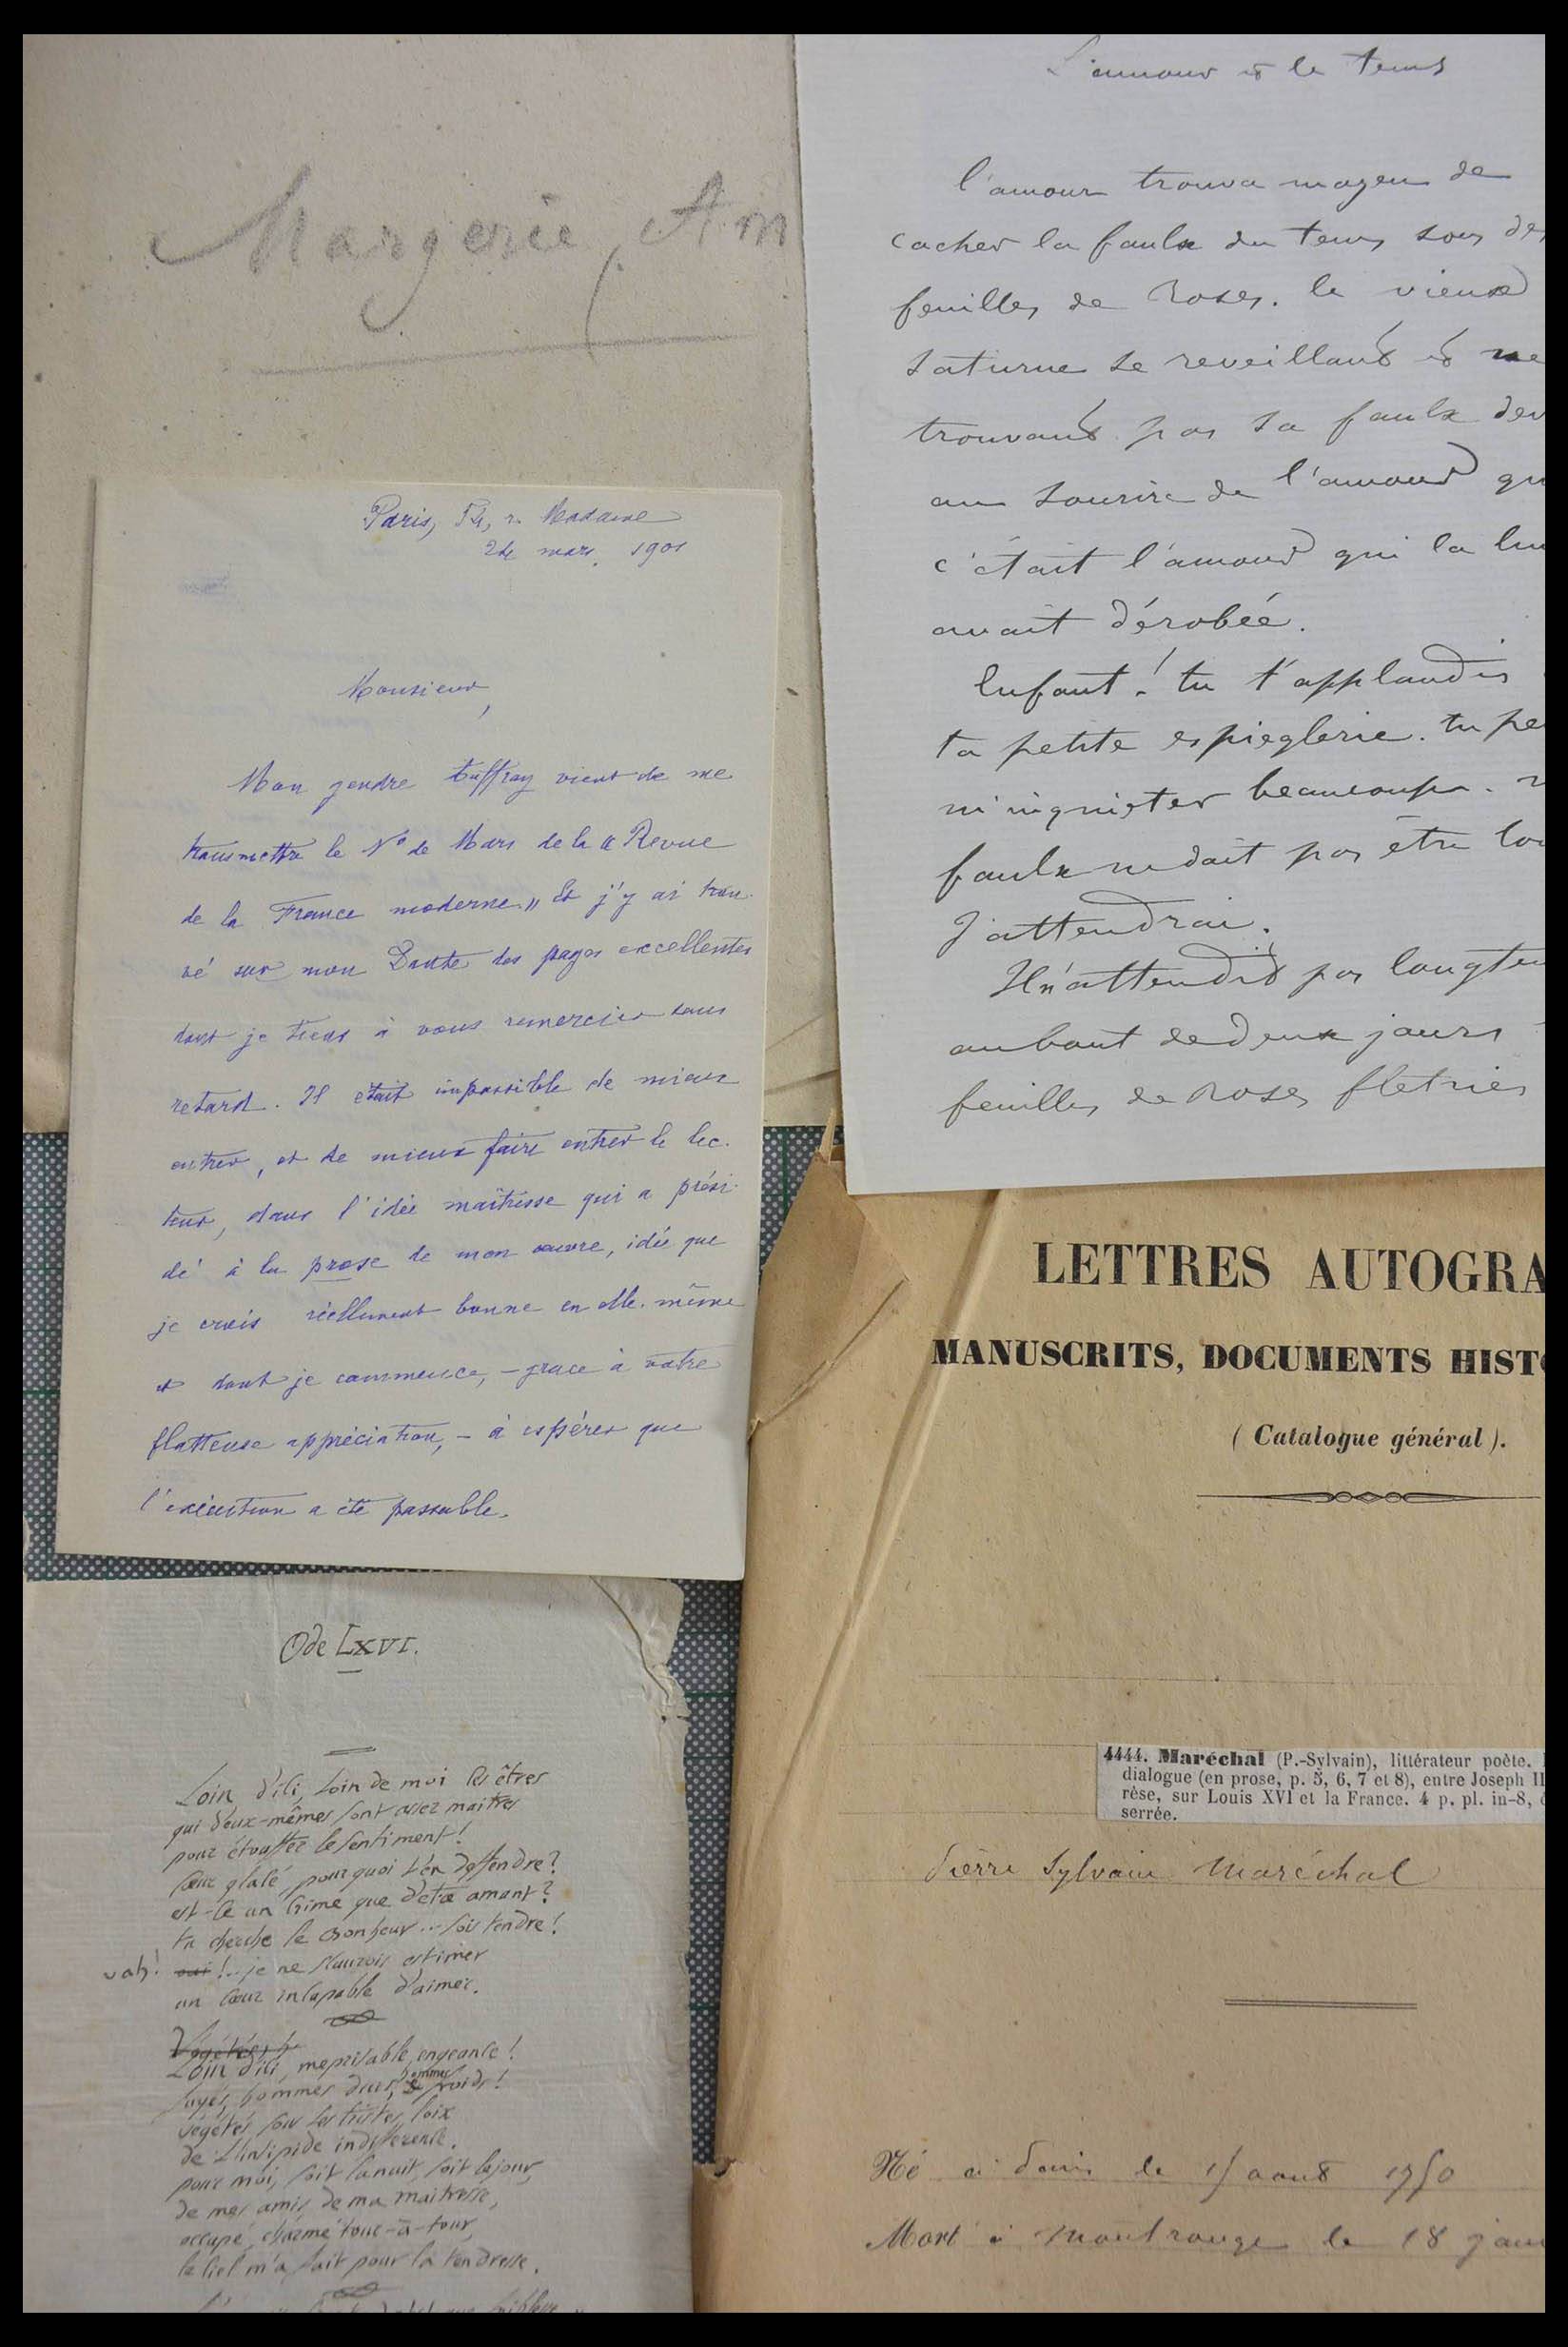 Margerie, Am
L'amour et le tems
l'amour trouva moyen de
cacher la faulx du tems sous des
feuilles de Roses. le vieux
saturne se reveillant et ne
trouvant pas sa faulx dev
au sourire de l'amour qu
c'était l'amour qui la lui
avait dérobée.
Enfant! tu t'applaudis
ta petite espieglerie. tu pe
m'inquieter beaucoup.
faulx ne doit pas être lo
J'attendrai.
Il n'attendit pas longtem
au bout de deux jours
feuilles de Roses fletries
Paris, 54, r. Madame
24 mars, 1901
Monsieur,
Mon gendre Tuffray vient de me
transmettre le No de Mars de la « Revue
de la France moderne » et j'y ai trou-
vé sur mon Dante des pages excellentes
dont je tiens à vous remercier sans
retard. Il était impossible de mieux
entrer, et de mieux faire entrer le lec-
teur, dans l'idée maîtresse qui a prési-
dé à la prose de mon œuvre, idée que
je crois réellement bonne en elle-même
et dont je commence, – grace à votre
flatteuse appréciation, – à espérer que
l'exécution a été passable.
LETTRES AUTOGRA
MANUSCRITS, DOCUMENTS HISTO
( Catalogue général ).
4444. Maréchal (P.-Sylvain), littérateur poète.
dialogue (en prose, p. 5, 6, 7 et 8), entre Joseph II
rèse, sur Louis XVI et la France. 4 p. pl. in-8,
serrée.
Pierre Sylvain Maréchal
Né à Paris le 15 aout 1750
Mort à Montrouge le 18 jan
Ode LXVI.
Loin d'ici, loin de moi les êtres
qui d'eux-mêmes sont assez maitres
pour étouffer le sentiment!
Cœur glacé, pourquoi t'en deffendre?
est-ce un crime que d'etre amant?
tu cherche le bonheur... sois tendre!
vah! oui!.. je ne sçaurois estimer
un cœur incapable d'aimer.
Végétés,
Loin d'ici, meprisable engeance!
fuyés, hommes durs, hommes froids!
végétés sous les tristes loix
de l'insipide indifference.
pour moi, soit la nuit, soit le jour,
de mes amis, de ma maitresse,
occupé, charmé tour-à-tour,
le ciel m'a fait pour la tendresse.